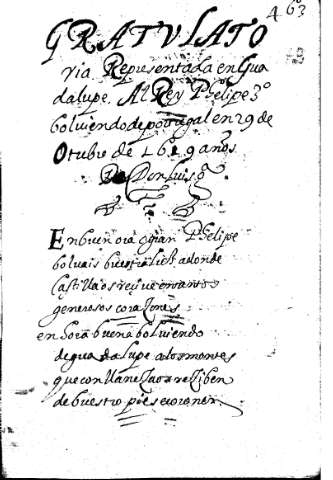 463
GRATVLATO
ria Representada en Gua
dalupe. Al Rey Phelipe 3º
bolviendo de portugal en 29 de
Otubre de 1619 años
De Don Luis
En buen ora o gran Phelipe
bolvais
Castilla os
generosos coraçones
en hora buena bolviendo
de guadalupe a los montes
que con llaneza
de buestro pie